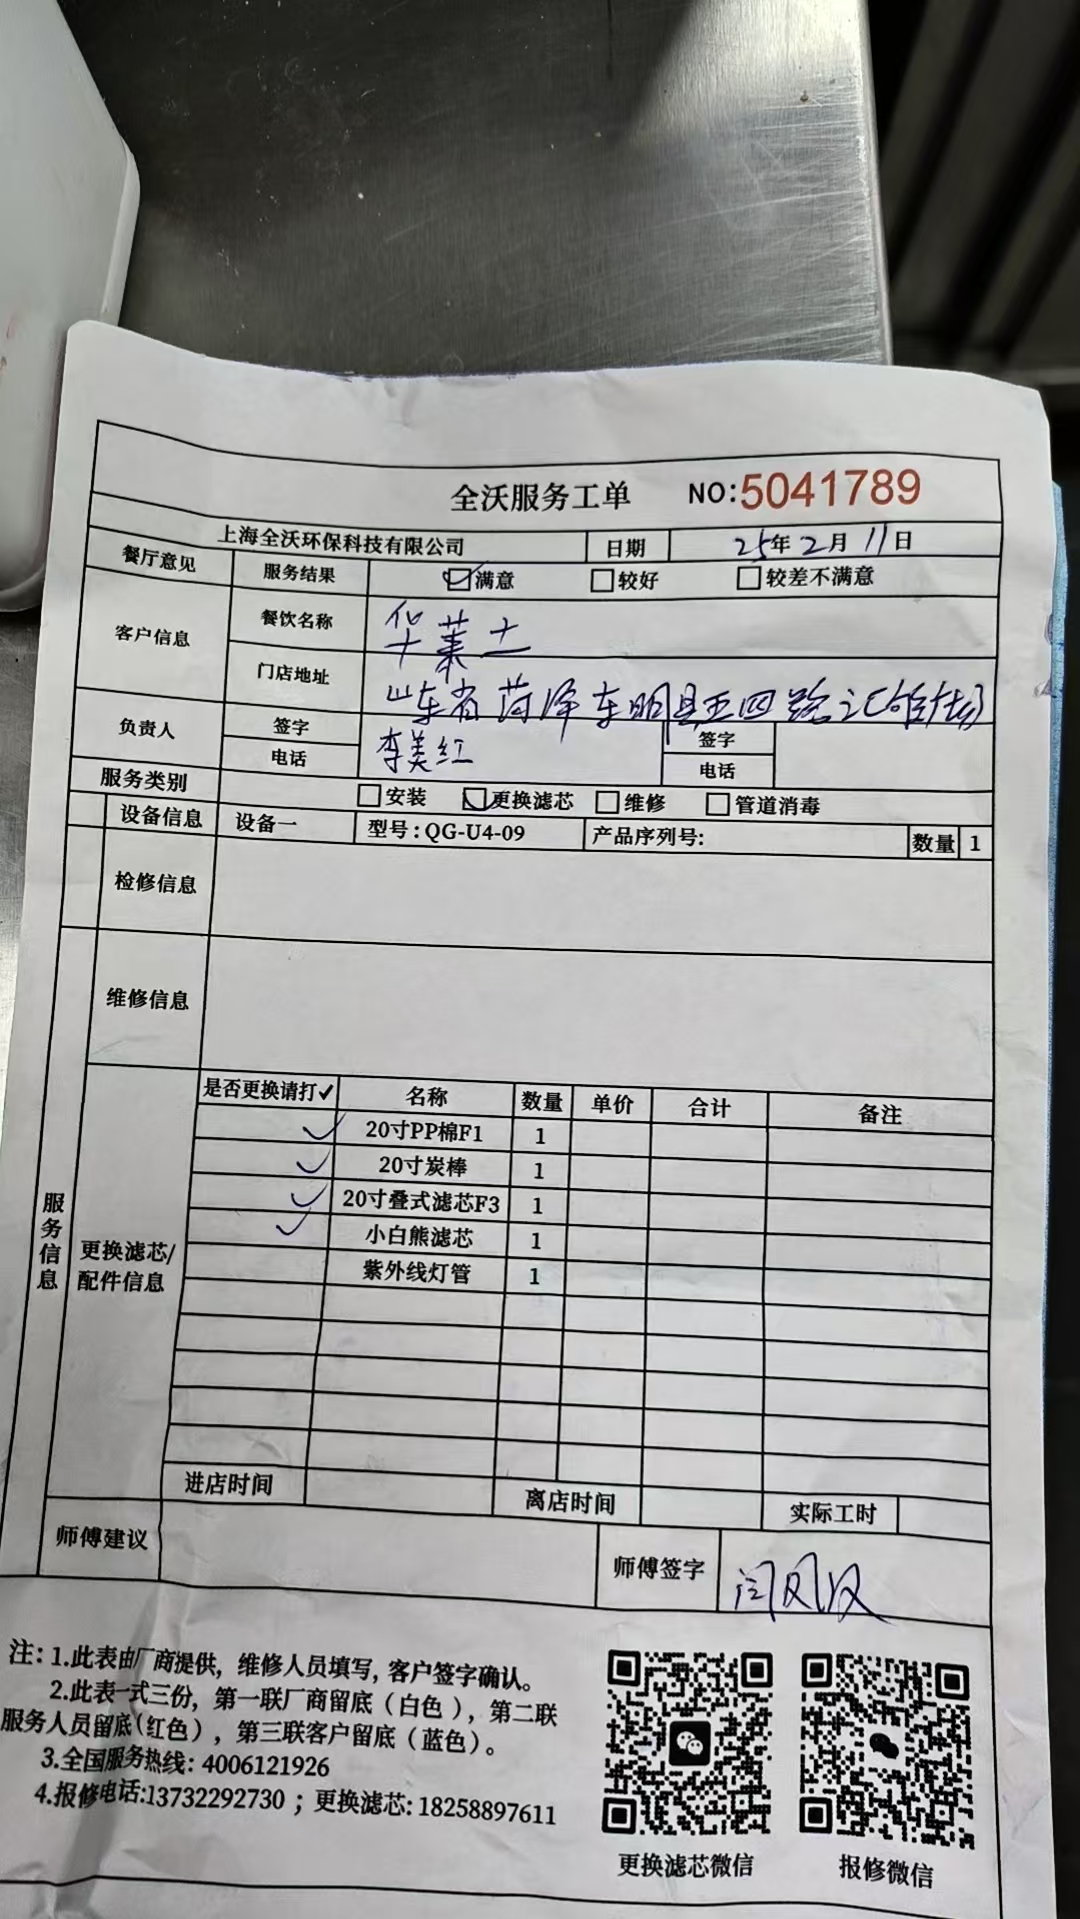 全沃服务工单 NO:5041789
上海全沃环保科技有限公司 日期 25年2月11日
餐厅意见 服务结果 ☑满意 □较好 □较差不满意
客户信息 餐饮名称 华莱士
门店地址 山东省菏泽东明县五四路
负责人 签字 李美红 签字
电话 电话
服务类别 □安装 ☑更换滤芯 □维修 □管道消毒
设备信息 设备一 型号:QG-U4-09 产品序列号: 数量 1
检修信息
维修信息
服务信息
更换滤芯/配件信息
是否更换请打✓ 名称 数量 单价 合计 备注
✓ 20寸PP棉F1 1
✓ 20寸炭棒 1
✓ 20寸叠式滤芯F3 1
✓ 小白熊滤芯 1
紫外线灯管 1
进店时间 离店时间 实际工时
师傅建议 师傅签字 闫凤汉
注:1.此表由厂商提供，维修人员填写,客户签字确认。
2.此表一式三份，第一联厂商留底（白色），第二联
服务人员留底(红色），第三联客户留底（蓝色）。
3.全国服务热线: 4006121926
4.报修电话:13732292730；更换滤芯: 18258897611
更换滤芯微信 报修微信